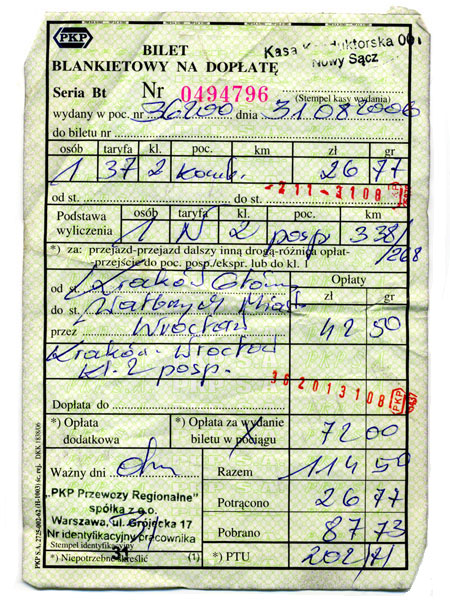 PKP
BILET
BLANKIETOWY NA DOPŁATĘ
Kasa Konduktorska 001
Nowy Sącz
Seria Bt Nr 0494796
(Stempel kasy wydania)
wydany w poc. nr 36200 dnia 31.08 2006
do biletu nr
osób taryfa kl. poc. km zł gr
1 37 2 komb. 26 77
211-3108
od st. do st.
Podstawa wyliczenia
osób taryfa kl. poc. km
1 N 2 posp. 338/268
*) za: przejazd-przejazd dalszy inną drogą-różnica opłat-
przejście do poc. posp./ekspr. lub do kl. 1
Opłaty
zł gr
od st. Kraków Główny
do st. Wałbrzych Miasto
przez Wrocław 42 50
Kraków - Wrocław
kl. 2 posp.
362013108 PKP
Dopłata do
*) Opłata dodatkowa
*) Opłata za wydanie biletu w pociągu 72 00
Ważny dni
Razem 114 50
„PKP Przewozy Regionalne"
spółka z o.o.
Warszawa, ul. Grójecka 17
Nr identyfikacyjny pracownika
31
Potrącono 26 77
Pobrano 87 73
Stempel identyfikacyjny
*) Niepotrzebne skreślić (1)
*) PTU
PKP S.A. 2725-002-62 (H-1003) śc. rej. DKK 1838/06